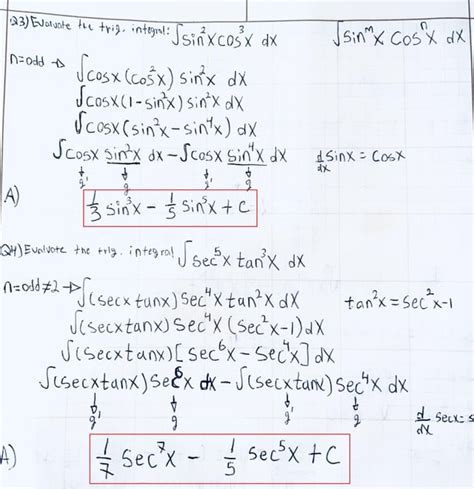 Q3) Evaluate the trig. integral: ∫sin²xcos³x dx
∫sinᵐx cosⁿx dx
n=odd → ∫cosx(cos²x) sin²x dx
∫cosx(1-sin²x) sin²x dx
∫cosx(sin²x-sin⁴x) dx
∫cosx sin²x dx - ∫cosx sin⁴x dx
d/dx sinx = cosx
g' g g' g
A) 1/3 sin³x - 1/5 sin⁵x + C
Q4) Evaluate the trig. integral ∫sec⁵x tan³x dx
n=odd≠2 → ∫(secx tanx) sec⁴x tan²x dx
tan²x = sec²x-1
∫(secxtanx) sec⁴x (sec²x-1) dx
∫(secxtanx)[sec⁶x - sec⁴x] dx
∫(secxtanx) sec⁶x dx - ∫(secxtanx) sec⁴x dx
g' g g' g
d/dx secx = s
A) 1/7 sec⁷x - 1/5 sec⁵x + C